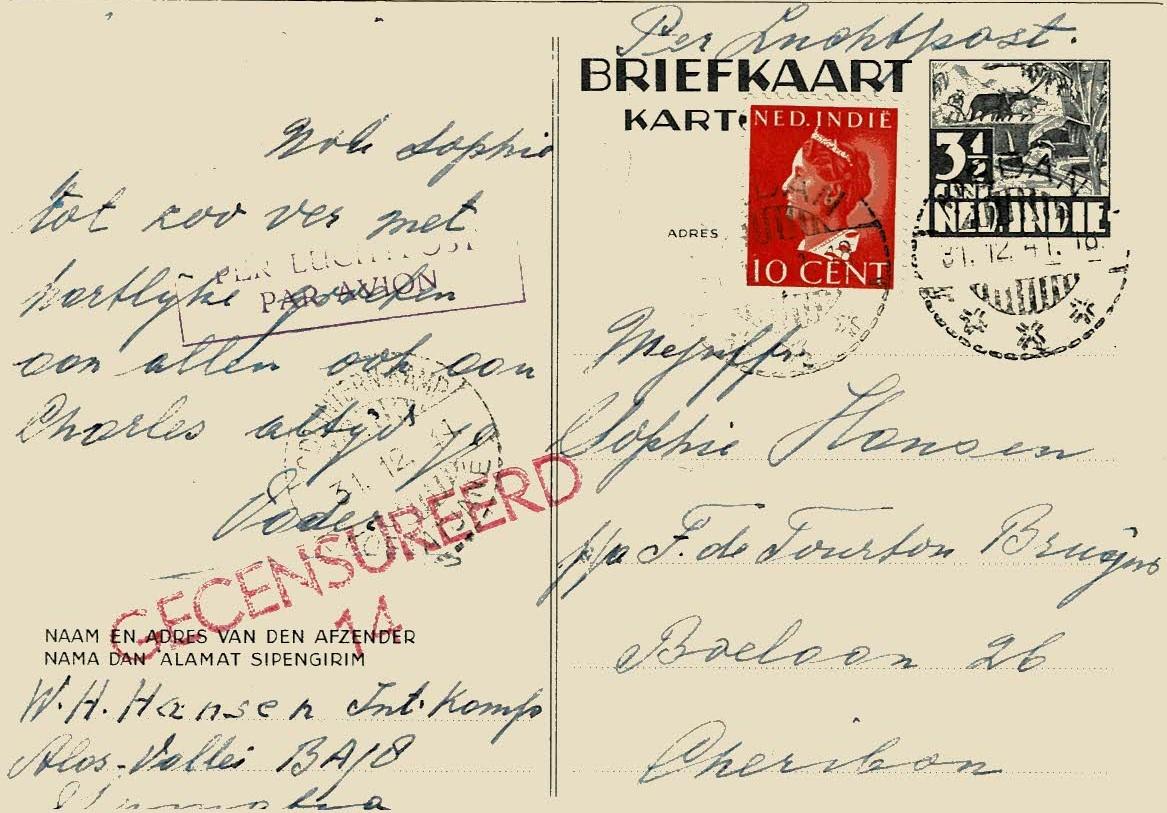 Per Luchtpost.
BRIEFKAART
KART
NED. INDIË
10 CENT
3½
CENT
NED. INDIE
31.12.41.18
ADRES
Mejuffr.
Sophie Hansen
p/a F. de Tourton Bruijns
Boeloan 26
Cheribon
Sophie
tot zoo ver met
hartlijke groeten
aan allen ook aan
Charles altijd je
Vader
PER LUCHTPOST
PAR AVION
31.12.41
GECENSUREERD
14
NAAM EN ADRES VAN DEN AFZENDER
NAMA DAN ALAMAT SIPENGIRIM
W. H. Hansen Int. Kamp
Alas-Vallei BA/8